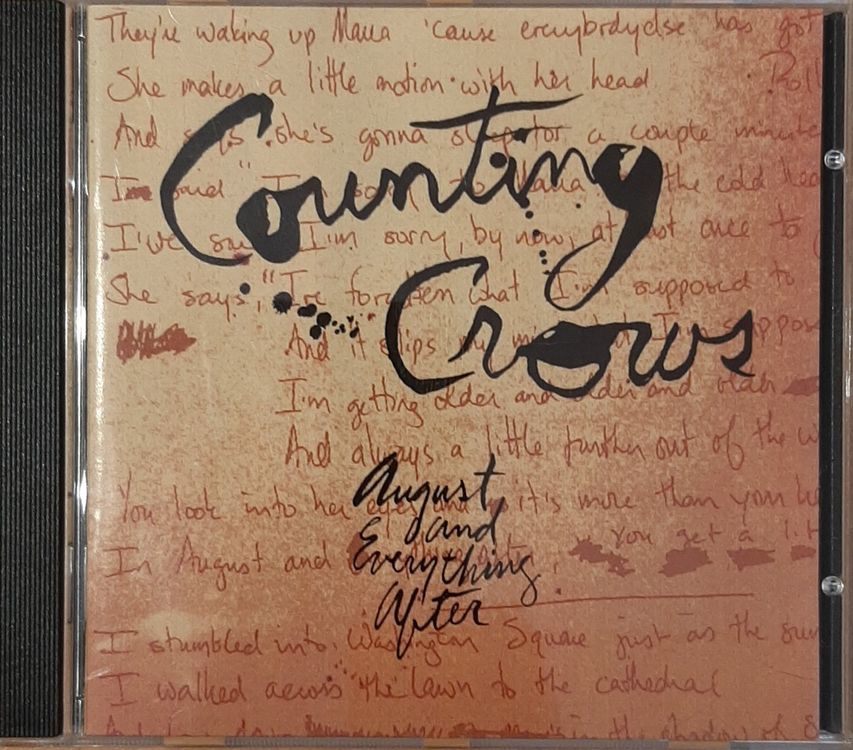 They're waking up Maria 'cause everybodyelse has got
She makes a little motion with her head
And says she's gonna sleep for a couple minute
I said "I'm sorry" to Maria the cold hea
I've said I'm sorry, by now, at least once to
Counting
She says, "I've forgotten what I'm supposed to
Crows
And it slips my mind but I'm suppos
I'm getting older and older and older
And always a little further out of the w
August
and
Everything
After
You look into her eyes and it's more than your he
In August and you get a lit
I stumbled into Washington Square just as the sun
I walked across the lawn to the cathedral
in the shadow of S